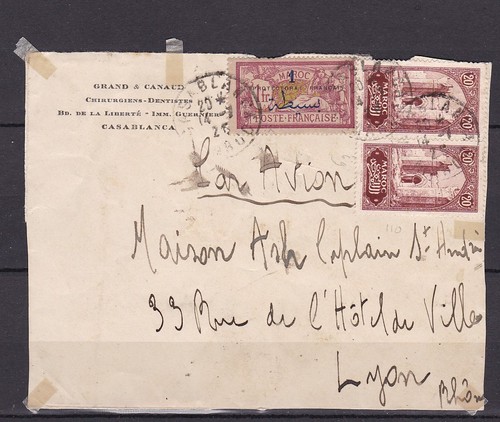 GRAND & CANAUD
CHIRURGIENS-DENTISTES
BD. DE LA LIBERTÉ - IMM. GUERNIER
CASABLANCA
MAROC
1
PROTECTORAT FRANÇAIS
POSTE-FRANÇAISE
20 20
MAROC
20 20
MAROC
CASABLANCA
20
14
Par Avion
Maison Ash Caplain St André
33 Rue de l'Hôtel de Ville
Lyon
Rhône
110